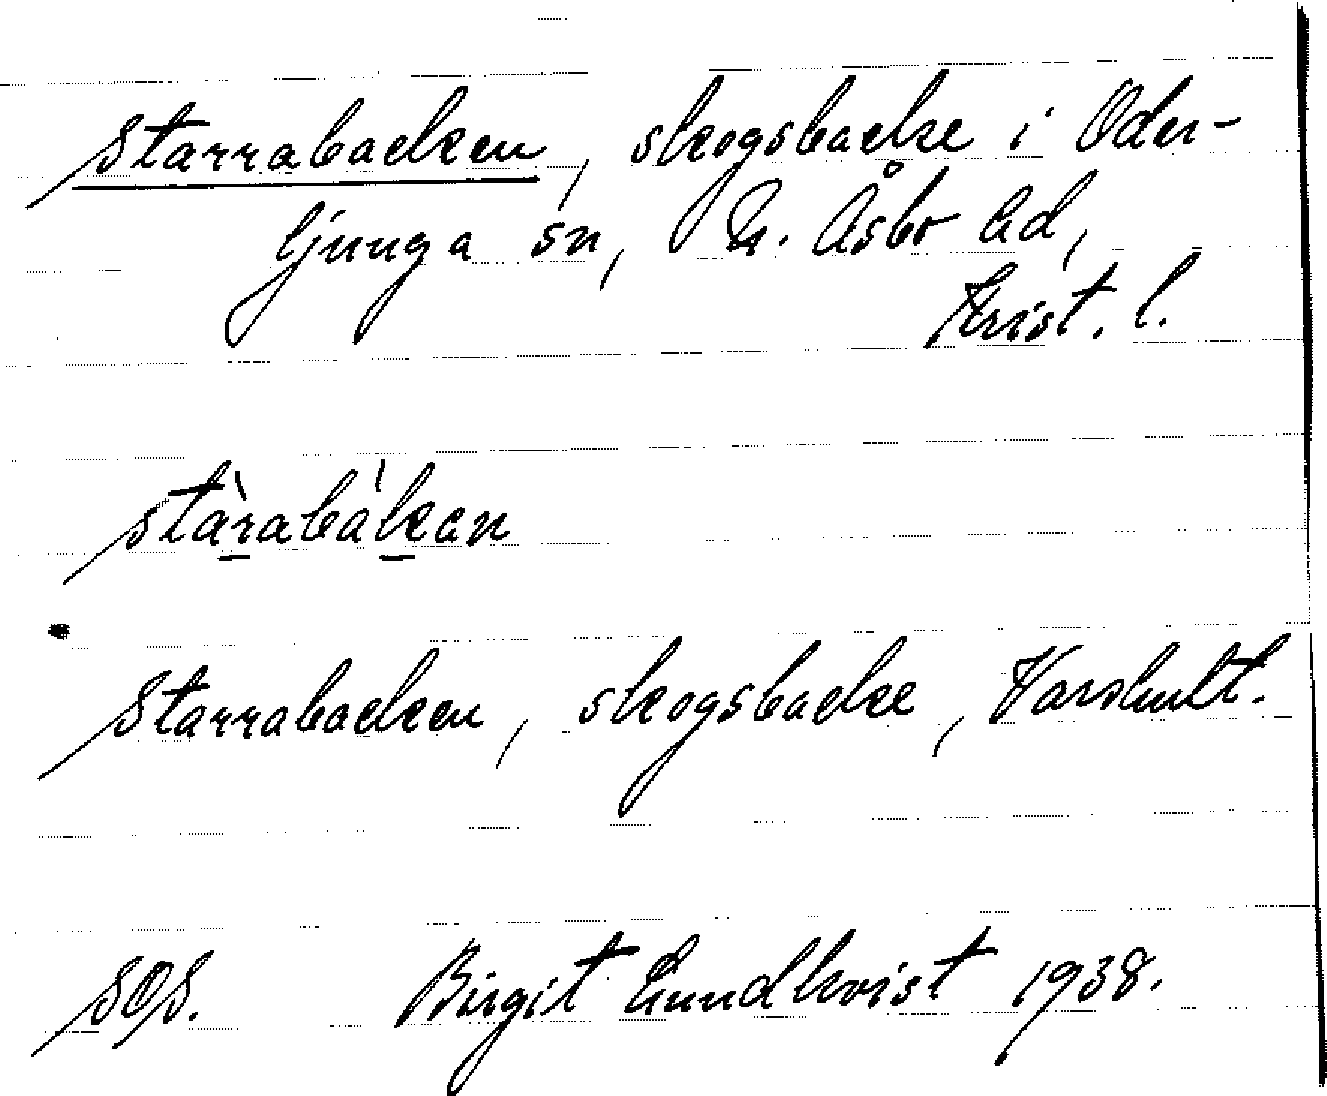 Starrabacken, skogsbacke i Oder-
ljunga sn, N. Åsbo hd,
Krist. l.
stàrabákan
Starrabacken, skogsbacke, Varshult.
SOS. Birgit Lundkvist 1938.